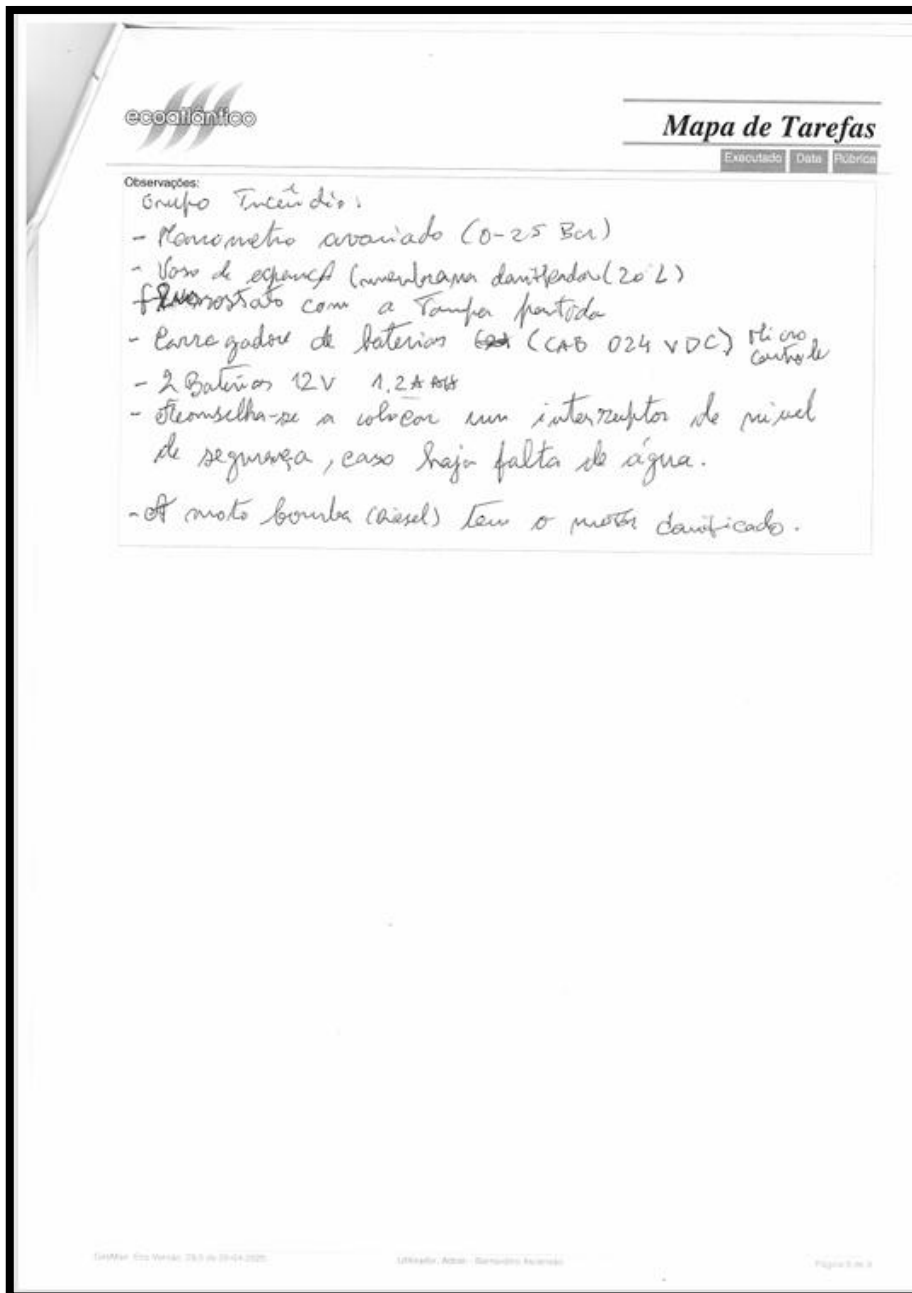 ecoatlântico
Mapa de Tarefas
Executado Data Rúbrica
Observações:
Grupo Incêndio:
- Manometro avariado (0-25 Bar)
- Vaso de (membrana (20 L)
Pressostato com a Tampa partida
- Carregador de baterias (CAB 024 VDC) Micro
Controle
- 2 Baterias 12V 1.2A
- Aconselha-se a colocar um interruptor de nivel
de segurança, caso haja falta de água.
- A moto bomba (diesel) tem o motor danificado.
Utilizador: Admin - Bernardino